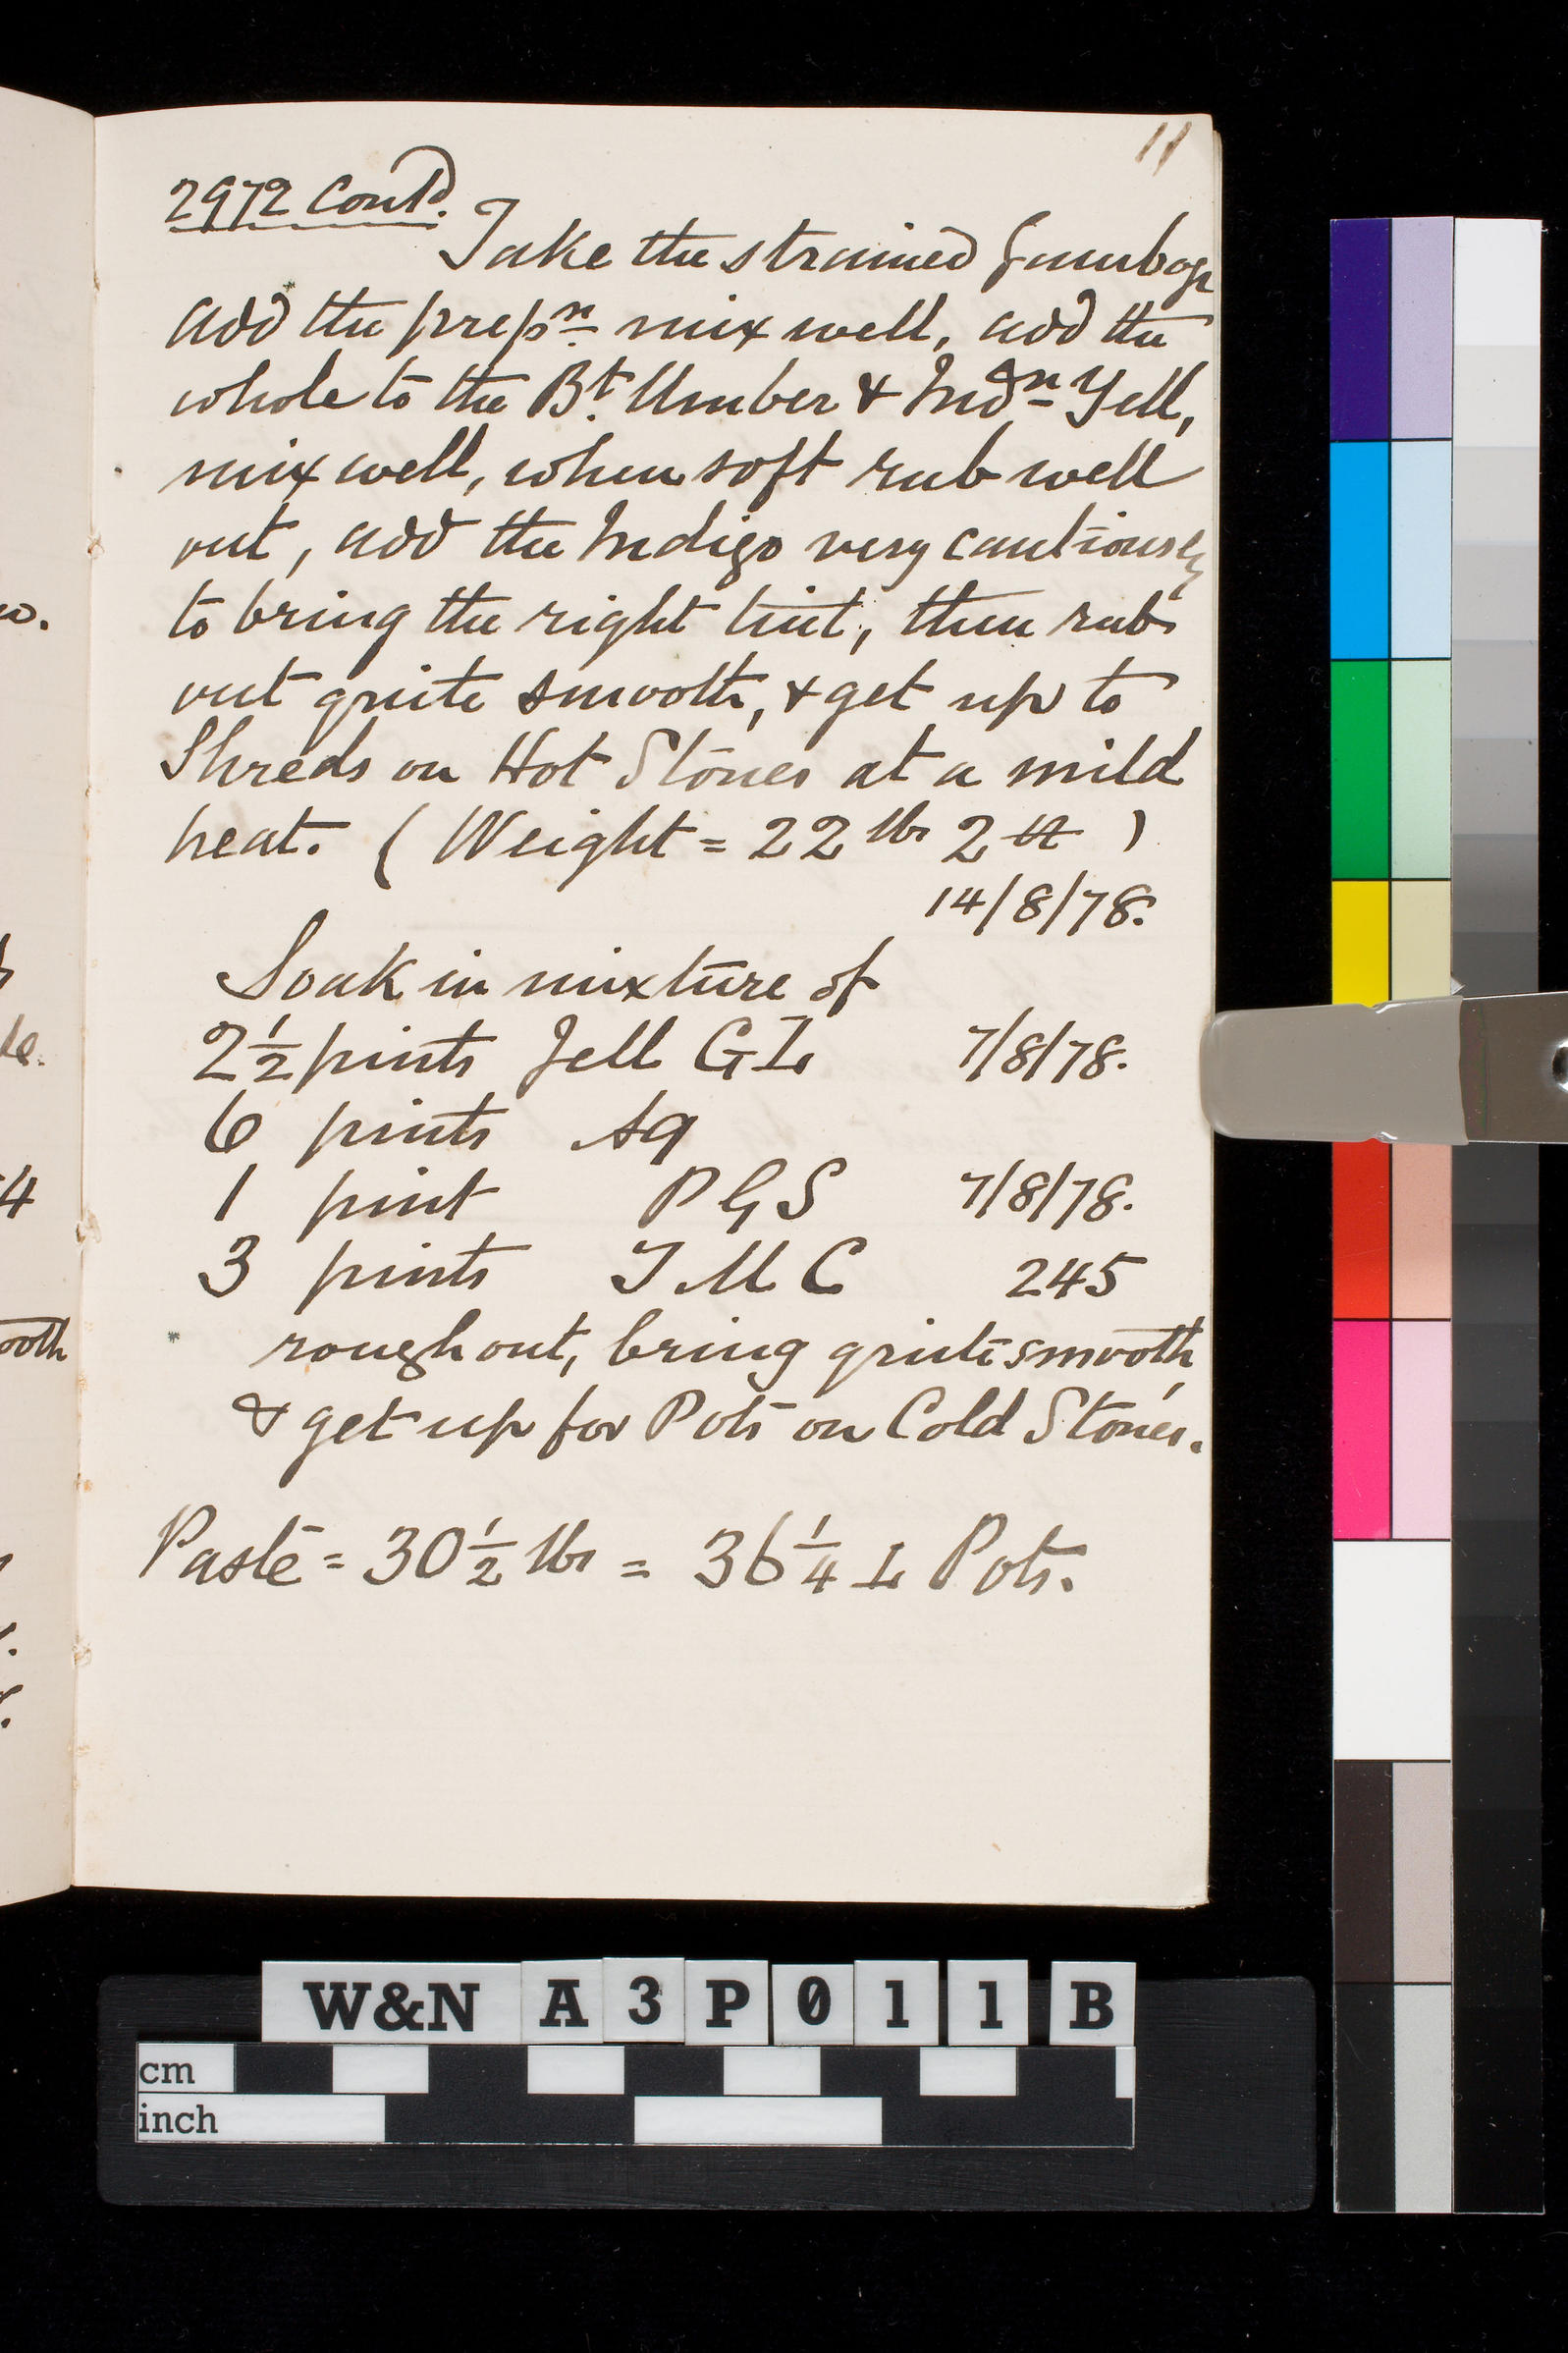 11
2972 Contd.
Take the strained Gamboge
add the prepn mix well, add the
whole to the Bt. Umber & Indn Yell,
mix well, when soft rub well
out, add the Indigo very cautiously
to bring the right tint, then rub
out quite smooth, & get up to
Shreds on Hot Stones at a mild
heat. ( Weight = 22 lbs 2 )
14/8/78.
Soak in mixture of
2 1/2 pints Jell G L 7/8/78.
6 pints Aq
1 pint P G S 7/8/78.
3 pints T M C 245
rough out, bring quite smooth,
& get up for Pots on Cold Stones.
Paste = 30 1/2 lbs = 36 1/4 L Pots.
w.
4
ooth
W&N A3P011B
cm
inch